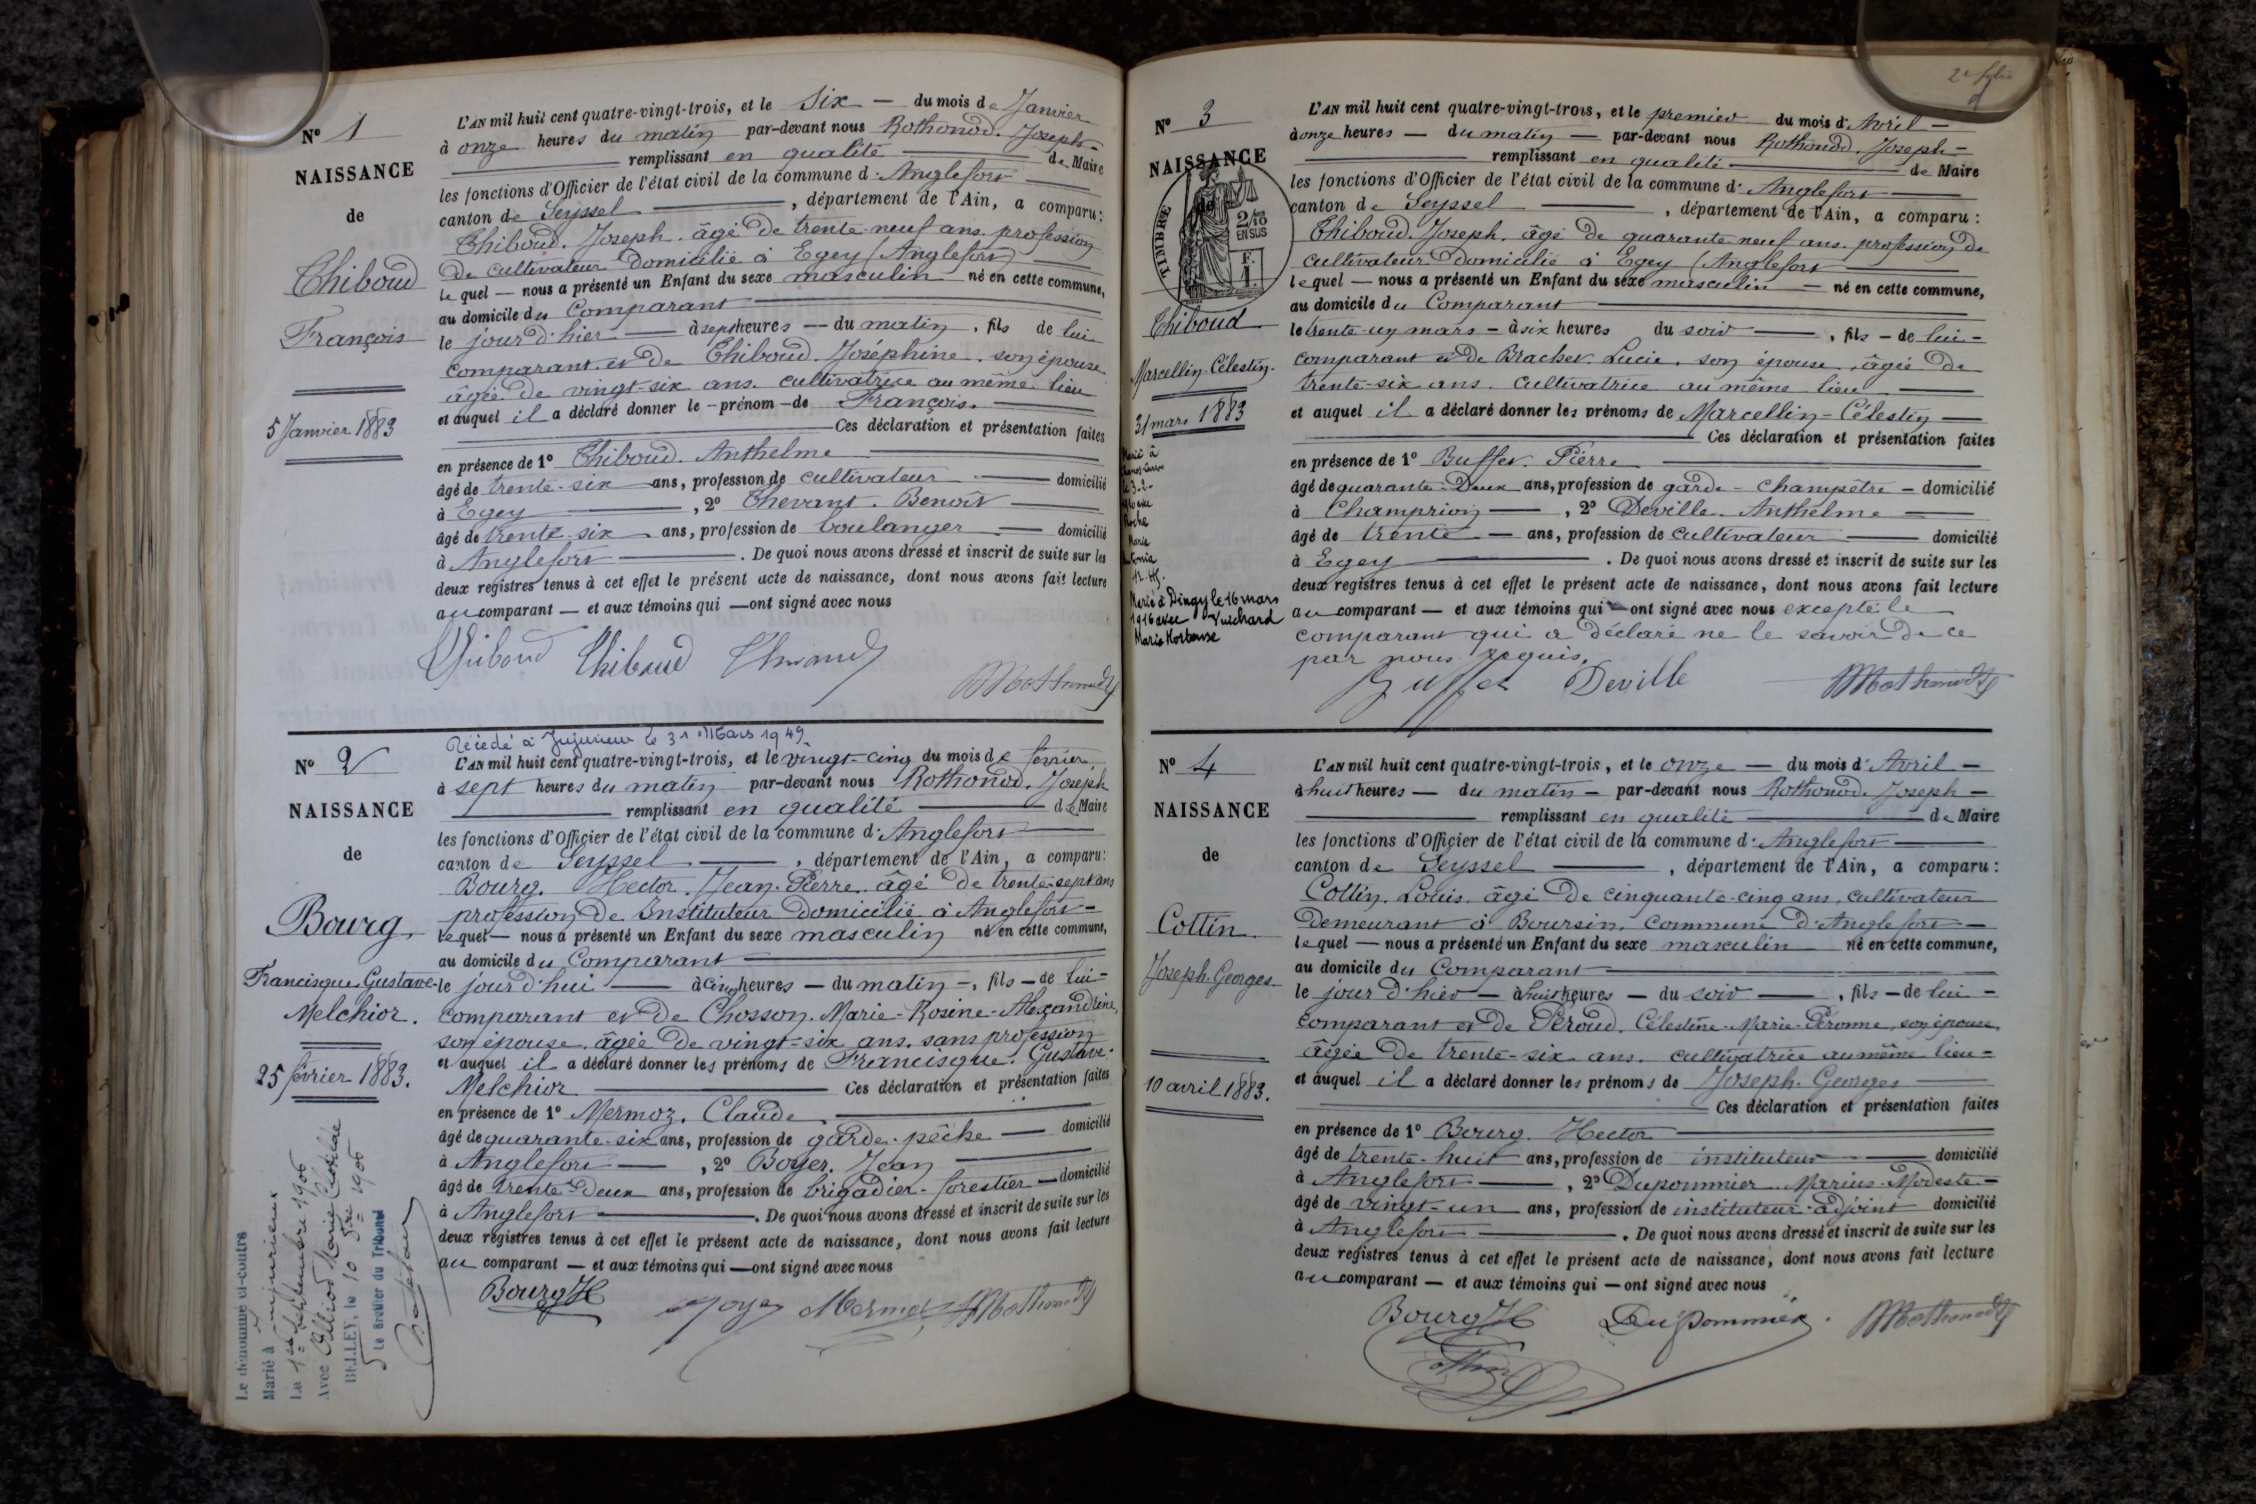 N° 1
NAISSANCE
de
Thiboud
François
5 Janvier 1883
L'AN mil huit cent quatre-vingt-trois, et le Six — du mois de Janvier
à onze heures du matin par-devant nous Rothonod. Joseph -
remplissant en qualité de Maire
les fonctions d'Officier de l'état civil de la commune d'Anglefort
canton de Seyssel , département de l'Ain, a comparu :
Thiboud. Joseph. âgé de trente-neuf ans. profession
de cultivateur domicilié à Egey (Anglefort)
lequel — nous a présenté un Enfant du sexe masculin né en cette commune,
au domicile du Comparant
le jour d'hier — à sept heures — du matin , fils de lui
comparant et de Thiboud. Joséphine. son épouse
âgée de vingt-six ans. cultivatrice au même lieu
et auquel il a déclaré donner le - prénom - de François.
Ces déclaration et présentation faites
en présence de 1° Thiboud. Anthelme
âgé de trente-six ans, profession de cultivateur domicilié
à Egey , 2° Chevant. Benoît
âgé de trente-six ans, profession de boulanger — domicilié
à Anglefort . De quoi nous avons dressé et inscrit de suite sur les
deux registres tenus à cet effet le présent acte de naissance, dont nous avons fait lecture
au comparant — et aux témoins qui — ont signé avec nous
Thiboud Thiboud
N° 2
NAISSANCE
de
Bourg.
Francisque Gustave-
Melchior.
25 février 1883.
Le dénommé ci-contre
Marié à Jujurieux
Le 1er Septembre 1906
Avec Marie Clotilde
BELLEY, le 10 7bre 1906
Le Greffier du Tribunal
Décédé à Jujurieux le 31 Mars 1949.
L'AN mil huit cent quatre-vingt-trois, et le vingt-cinq du mois de février
à sept heures du matin par-devant nous Rothonod. Joseph
remplissant en qualité de Maire
les fonctions d'Officier de l'état civil de la commune d'Anglefort
canton de Seyssel , département de l'Ain, a comparu :
Bourg. Hector. Jean-Pierre. âgé de trente-sept ans
profession de Instituteur domicilié à Anglefort -
lequel — nous a présenté un Enfant du sexe masculin né en cette commune,
au domicile du Comparant
le jour d'hui — à cinq heures — du matin -, fils - de lui -
comparant et de Chosson. Marie-Rosine-Alexandrine,
son épouse. âgée de vingt-six ans. sans profession
et auquel il a déclaré donner les prénoms de Francisque. Gustave.
Melchior Ces déclaration et présentation faites
en présence de 1° Mermoz. Claude
âgé de quarante-six ans, profession de garde-pêche — domicilié
à Anglefort — , 2° Boyer. Jean
âgé de trente-deux ans, profession de brigadier-forestier — domicilié
à Anglefort . De quoi nous avons dressé et inscrit de suite sur les
deux registres tenus à cet effet le présent acte de naissance, dont nous avons fait lecture
au comparant — et aux témoins qui — ont signé avec nous
Bourg H
2e folio
N° 3
NAISSANCE
de
TIMBRE
2/10 EN SUS
F. 1.
Thiboud
Marcellin-Célestin.
31 mars 1883
Marié à
le 3-2-
avec
Roche
Marie
Antonia
Marié à Dingy le 16 mars
1916 avec Vuichard
Marie Hortense
L'AN mil huit cent quatre-vingt-trois, et le premier du mois d'Avril -
à onze heures — du matin — par-devant nous Rothonod. Joseph -
remplissant en qualité de Maire
les fonctions d'Officier de l'état civil de la commune d'Anglefort
canton de Seyssel , département de l'Ain, a comparu :
Thiboud. Joseph. âgé de quarante-neuf ans. profession de
cultivateur domicilié à Egey (Anglefort
lequel — nous a présenté un Enfant du sexe masculin — né en cette commune,
au domicile du Comparant
le trente-un mars - à six heures du soir — , fils - de lui -
comparant et de Brachet Lucie. son épouse, âgée de
trente-six ans. cultivatrice au même lieu
et auquel il a déclaré donner les prénoms de Marcellin-Célestin
Ces déclaration et présentation faites
en présence de 1° Buffet. Pierre
âgé de quarante-deux ans, profession de garde-champêtre - domicilié
à Champrion — , 2° Deville. Anthelme
âgé de trente — ans, profession de cultivateur domicilié
à Egey . De quoi nous avons dressé et inscrit de suite sur les
deux registres tenus à cet effet le présent acte de naissance, dont nous avons fait lecture
au comparant — et aux témoins qui — ont signé avec nous excepté le
comparant qui a déclaré ne le savoir de ce
par nous requis.
Buffet Deville
N° 4
NAISSANCE
de
Cottin
Joseph. Georges
10 avril 1883.
L'AN mil huit cent quatre-vingt-trois, et le onze — du mois d'Avril -
à huit heures — du matin - par-devant nous Rothonod. Joseph -
remplissant en qualité de Maire
les fonctions d'Officier de l'état civil de la commune d'Anglefort
canton de Seyssel , département de l'Ain, a comparu :
Cottin. Louis. âgé de cinquante-cinq ans. cultivateur
demeurant à Boursin. Commune d'Anglefort -
lequel — nous a présenté un Enfant du sexe masculin né en cette commune,
au domicile du Comparant
le jour d'hier — à huit heures — du soir — , fils - de lui -
comparant et de Péroud. Célestine-Marie-Péronne, son épouse.
âgée de trente-six ans. cultivatrice au même lieu -
et auquel il a déclaré donner les prénoms de Joseph. Georges
Ces déclaration et présentation faites
en présence de 1° Bourg. Hector
âgé de trente-huit ans, profession de instituteur — domicilié
à Anglefort — , 2° Dupommier Marius-Modeste -
âgé de vingt-un ans, profession de instituteur-adjoint domicilié
à Anglefort . De quoi nous avons dressé et inscrit de suite sur les
deux registres tenus à cet effet le présent acte de naissance, dont nous avons fait lecture
au comparant — et aux témoins qui — ont signé avec nous
Bourg H Dupommier